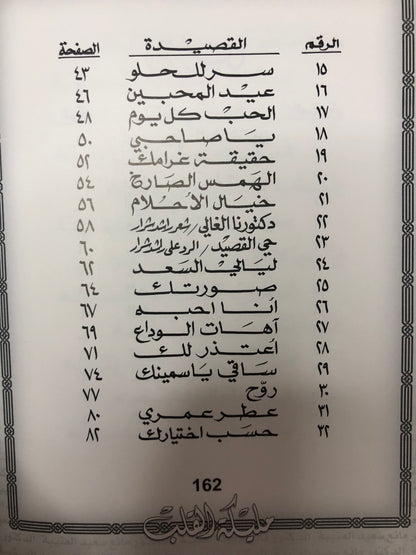 الرقم القصيدة الصفحة
١٥ سر للحلو ٤٣
١٦ عيد المحبين ٤٦
١٧ الحب كل يوم ٤٨
١٨ يا صاحبي ٥٠
١٩ حقيقة غرامك ٥٢
٢٠ الهمس الصارخ ٥٤
٢١ خيال الأحلام ٥٦
٢٢ دكتورنا الغالي / شعر راشد شرار ٥٨
٢٣ حي القصيد / الرد على راشد شرار ٦٠
٢٤ ليالي السعد ٦٢
٢٥ صورتك ٦٤
٢٦ أنا احبه ٦٧
٢٧ آهات الوداع ٦٩
٢٨ أعتذر لك ٧١
٢٩ ساقي ياسمينك ٧٤
٣٠ روّح ٧٧
٣١ عطر عمري ٨٠
٣٢ حسب اختيارك ٨٢
162
مليكة القلب